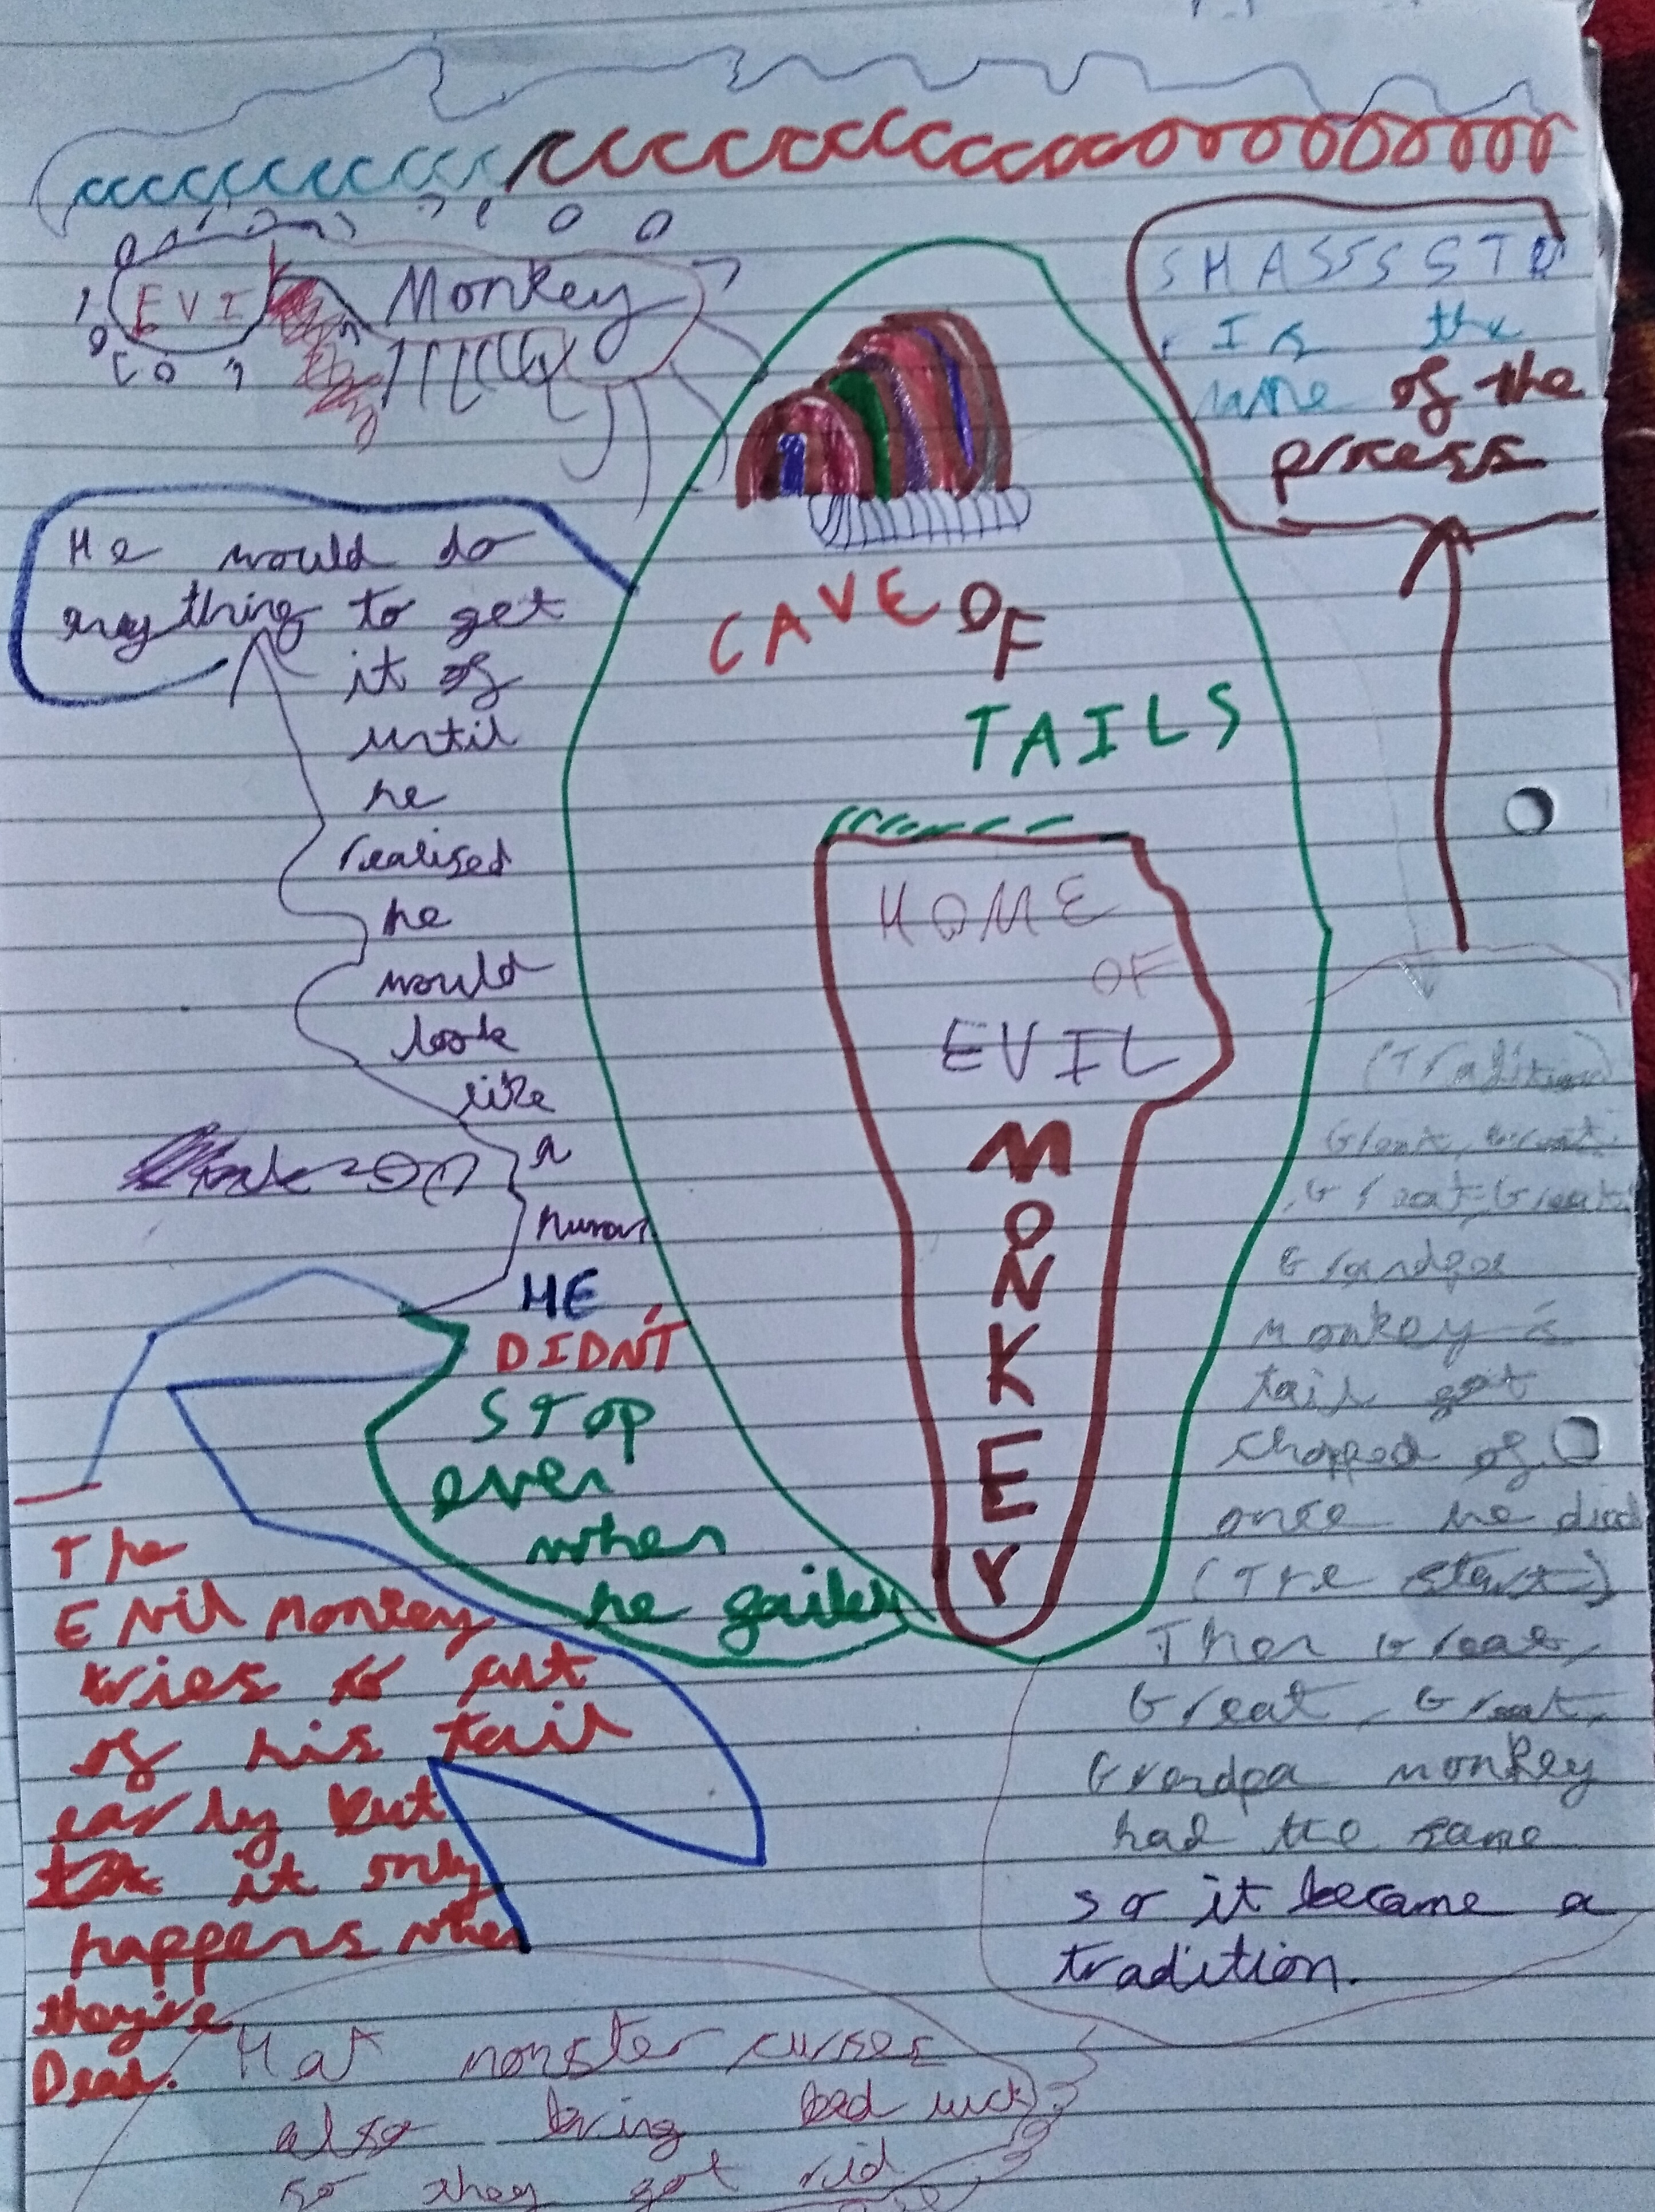 EVIL Monkey
SMASSSSTD
Is the
name of the
process
He would do
anything to get
it of
until
he
realised
he
would
look
like
a
human
CAVE OF
TAILS
HOME
OF
EVIL
MONKEY
HE
DIDN'T
STOP
even
when
he failed
The
Evil Monkey
tries to cut
of his tail
early but
it only
happens when
they're
Dead.
(Tradition)
Great, Great,
Great, Great,
Grandpa
Monkey's
tail got
chopped of
once he died
(The start)
Then Great,
Great, Great,
Grandpa monkey
had the same
so it became a
tradition.
Hat monster curses
also bring bad luck
so they got rid